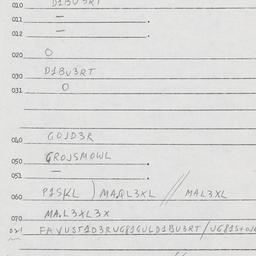 010 D1BU3RT
011 — .
012 — .
020 O
030 D1BU3RT
031 O
040 GOJD3R
050 GROJSMOWL .
051 — .
060 P1SKL ) MAQL3XL // MAL3XL
070 MA.L3XL3X